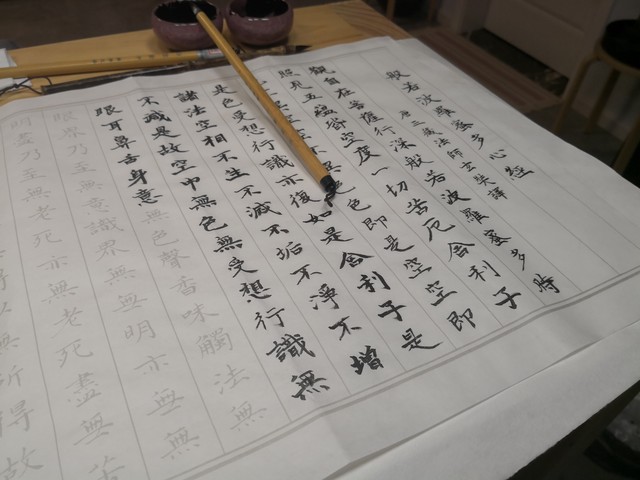 般若波羅蜜多心經
唐三藏法師玄奘譯
觀自在菩薩行深般若波羅蜜多時
照見五蘊皆空度一切苦厄舍利子
色即是空空即
是色受想行識亦復如是舍利子是
諸法空相不生不滅不垢不淨不增
不減是故空中無色無受想行識無
眼耳鼻舌身意無色聲香味觸法無
眼界乃至無意識界無無明亦無無
明盡乃至無老死亦無老死盡無苦
得以無所得故